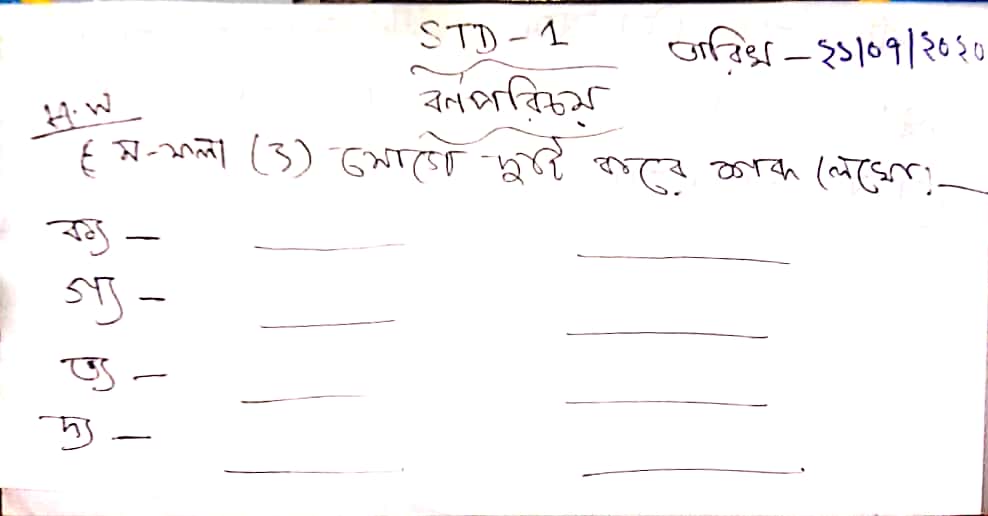 STD - 1
তারিখ - ২১/০৭/২০২০
বর্ণপরিচয়
H.W
ই য-ফলা (্য) যোগে দুটি করে শব্দ লেখো:-
ক্য -
গ্য -
ত্য -
দ্য -